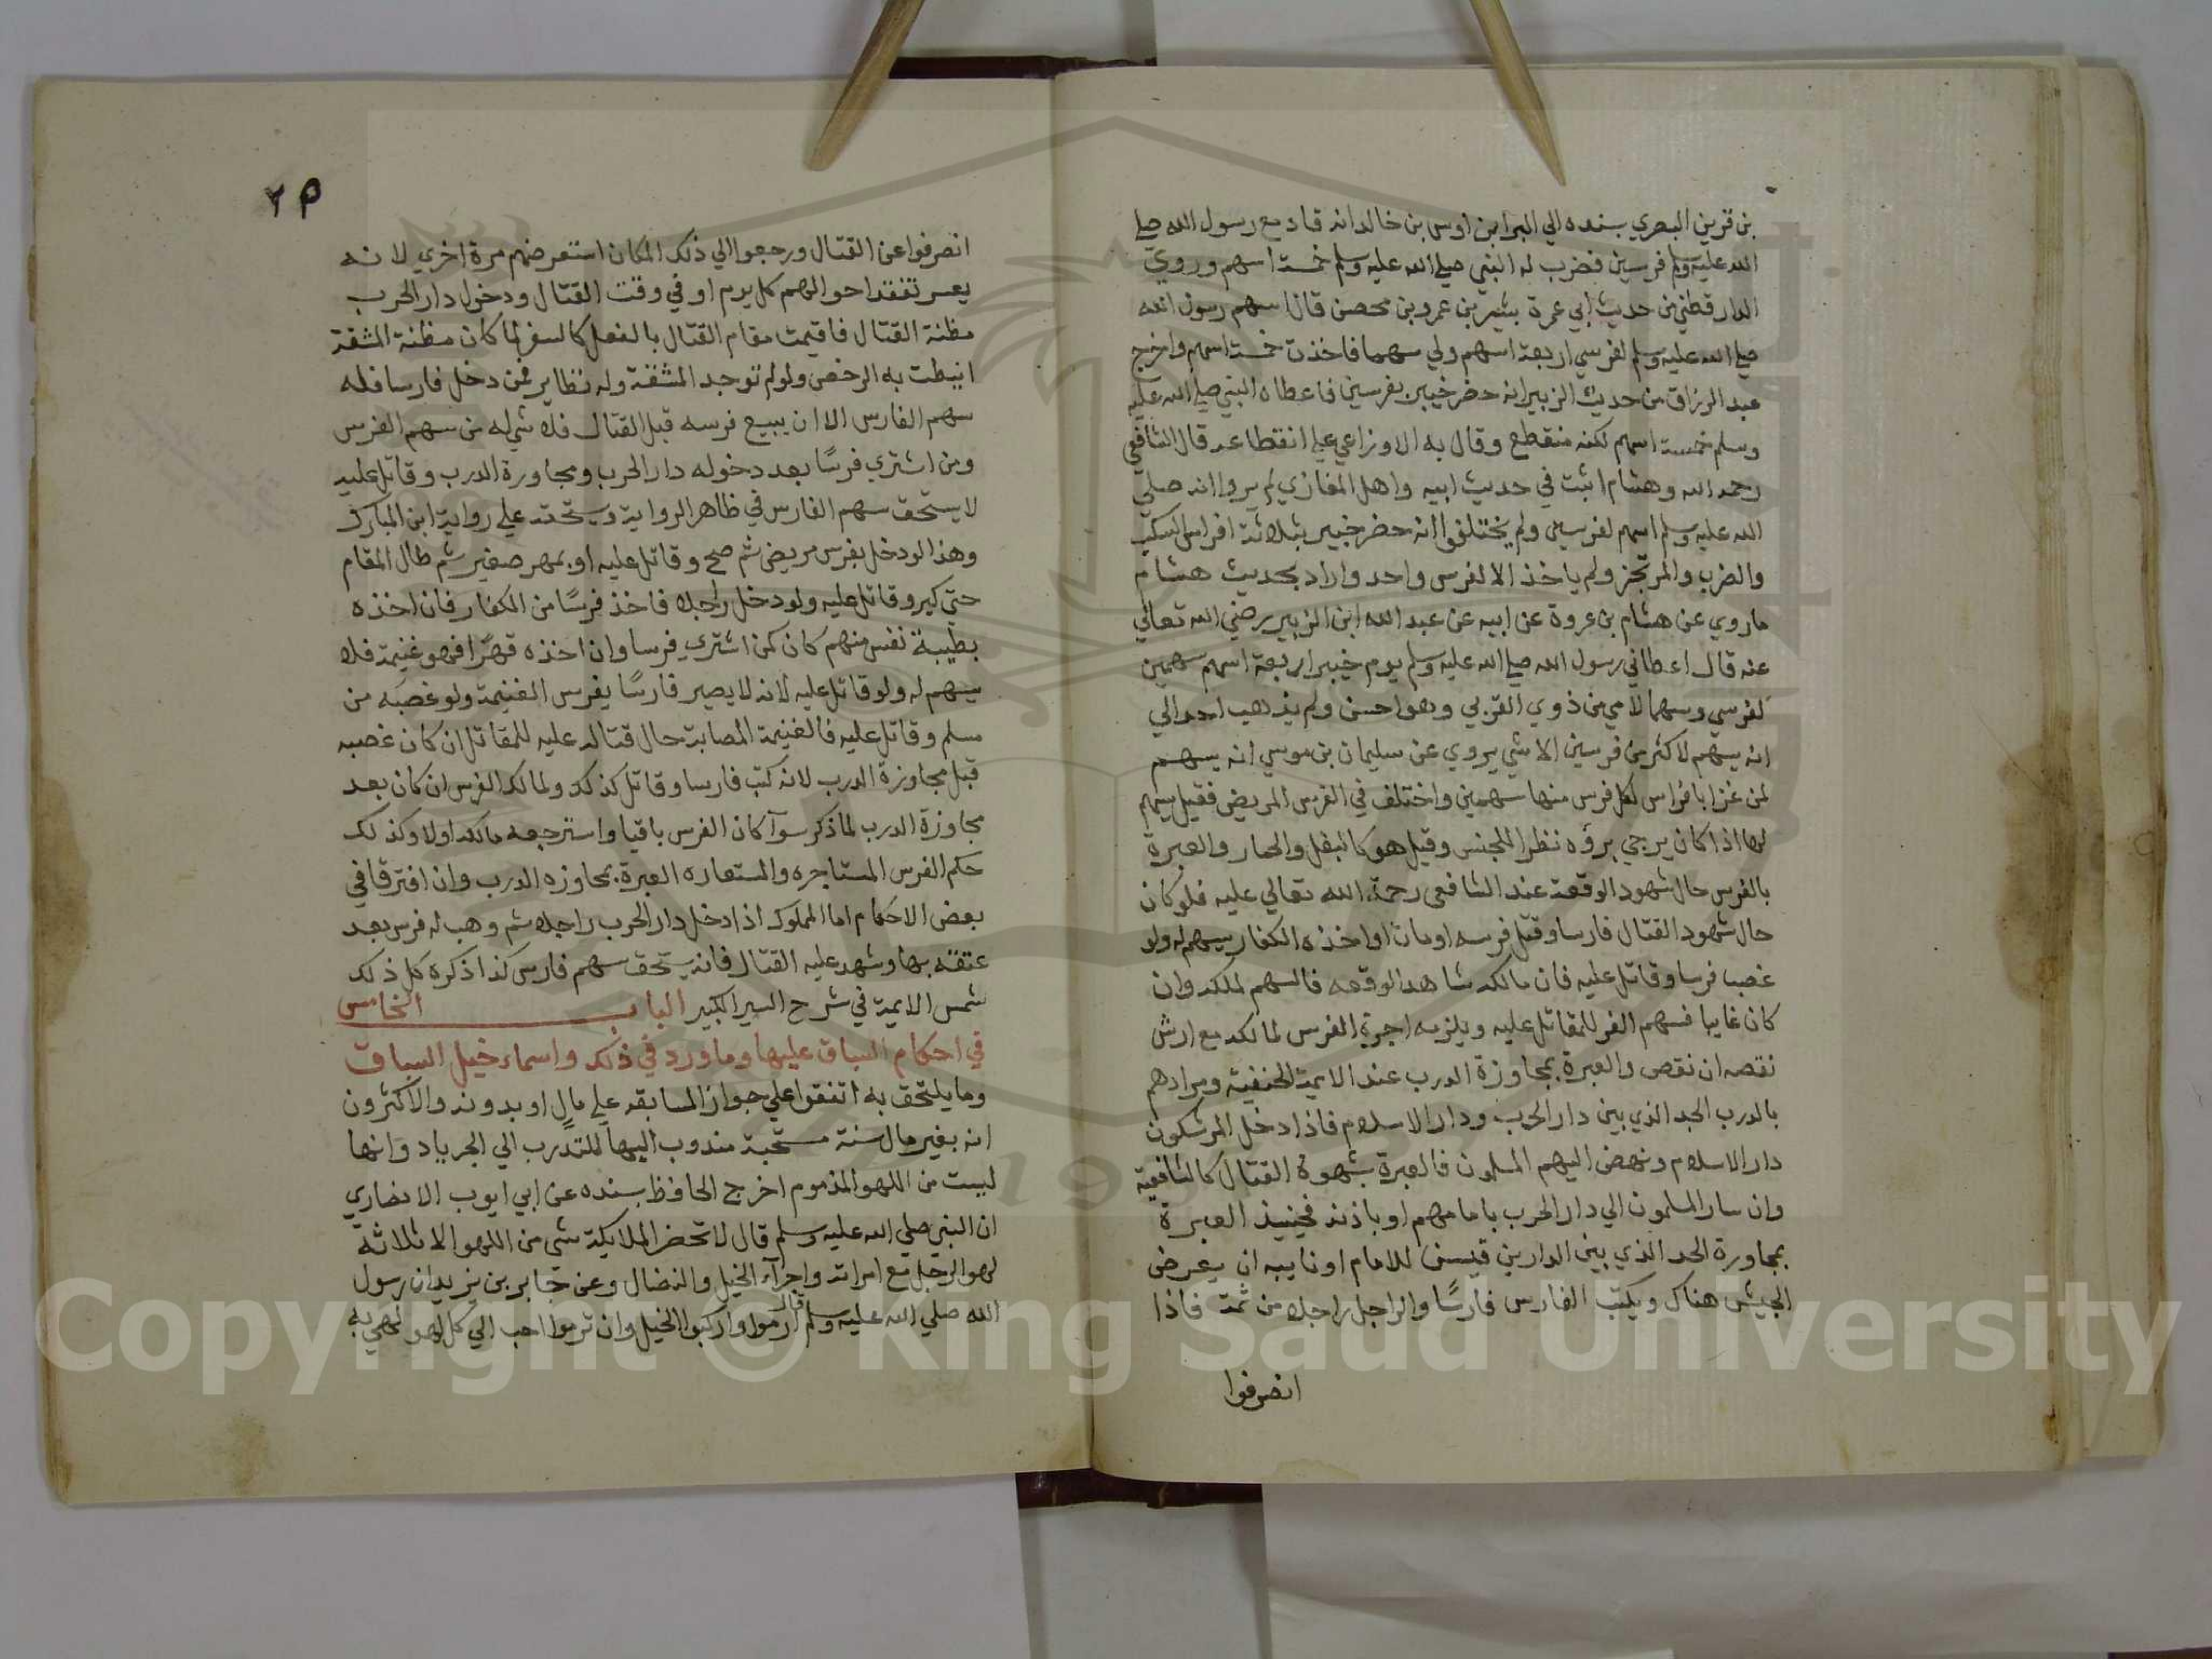 بن قرين البصري بسنده الي البرا بن اوس بن خالد انه قاد مع رسول الله صلي
الله عليه وسلم فرسين فضرب له النبي صلي الله عليه وسلم خمسة اسهم وروي
الدارقطني من حديث ابي عمرة بشير بن عمرو بن محصن قال اسهم رسول الله
صلي الله عليه وسلم لفرسي اربعة اسهم ولي سهما فاخذت خمسة اسهم واخرج
عبد الرزاق من حديث الزبير انه حضر خيبر بفرسين فاعطاه النبي صلي الله عليه
وسلم خمسة اسهم لكنه منقطع وقال به الاوزاعي علي انقطاعه قال الشافعي
رحمه الله وهشام اثبت في حديث ابيه واهل المغازي لم يرووا انه صلي
الله عليه وسلم اسهم لفرسين ولم يختلفوا انه حضر خيبر بثلاثة افراس السكب
والضرب والمرتجز ولم ياخذ الا لفرس واحد واراد بحديث هشام
ما روي عن هشام بن عروة عن ابيه عن عبد الله ابن الزبير رضي الله تعالي
عنه قال اعطاني رسول الله صلي الله عليه وسلم يوم خيبر اربعة اسهم سهمين
لفرسي وسهما لامي من ذوي القربي وهو احسن ولم يذهب احد الي
انه يسهم لاكثر من فرسين الا شي يروي عن سليمان بن موسي انه يسهم
لمن غزا بافراس لكل فرس منها سهمين واختلف في الفرس المريض فقيل يسهم
لها اذا كان يرجي برؤه نظرا للجنس وقيل هو كالبغل والحمار والعبرة
بالفرس حال شهود الوقعة عند الشافعي رحمة الله تعالي عليه فلو كان
حال شهود القتال فارسا وقتل فرسه او مات او اخذه الكفار يسهم له ولو
غصب فرسا وقاتل عليه فان مالكه شاهد الوقعه فالسهم لملكه وان
كان غايبا فسهم الفر للمقاتل عليه ويلزمه اجرة الفرس لمالكه مع ارش
نقصه ان نقص والعبرة بمجاوزة الدرب عند الايمة الحنفية ومرادهم
بالدرب الحد الذي بين دار الحرب ودار الاسلام فاذا دخل المرشكون
دار الاسلام ونهض اليهم المسلمون فالعبرة بشهوة القتال كالشافعية
وان سار المسلمون الي دار الحرب بامامهم او باذنه فحينيذ العبرة
بمجاورة الحد الذي بين الدارين فيسن للامام او نايبه ان يعرض
الجيش هناك ويكتب الفارس فارسًا والراجل راجلا من ثمة فاذا
انصرفوا
٢٥
انصرفوا عن القتال ورجعوا الي ذلك المكان استعرضهم مرة اخري لانه
يعسر تفقد احوالهم كل يوم او في وقت القتال ودخول دار الحرب
مظنة القتال فاقيمت مقام القتال بالفعل كالسفر لما كان مظنة المشقة
انيطت به الرخص ولو لم توجد المشقة وله نظاير فمن دخل فارسا فله
سهم الفارس الا ان يبيع فرسه قبل القتال فلا شي له من سهم الفرس
ومن اشتري فرسًا بعد دخوله دار الحرب ومجاورة الدرب وقاتل عليه
لا يستحق سهم الفارس في ظاهر الرواية ويستحقه علي رواية ابن المبارك
وهذا لو دخل بفرس مريض ثم صح وقاتل عليه او بمهر صغير ثم طال المقام
حتي كبر وقاتل عليه ولو دخل راجلا فاخذ فرسًا من الكفار فان اخذه
بطيبة نفس منهم كان كمن اشتري فرسا وان اخذه قهرًا فهو غنيمة فلا
يسهم له ولو قاتل عليه لانه لا يصير فارسًا بفرس الغنيمة ولو غصبه من
مسلم وقاتل عليه فالغنيمة المصابة حال قتاله عليه للمقاتل ان كان غصبه
قبل مجاوزة الدرب لانه كتب فارسا وقاتل كذلك ولمالك الفرس ان كان بعد
مجاوزة الدرب لما ذكر سوآ كان الفرس باقيا واسترجعه مالكه اولا وكذلك
حكم الفرس المستاجره والمستعاره العبرة بمجاوزه الدرب وان افترقا في
بعض الاحكام اما المملوك اذا دخل دار الحرب راجلا ثم وهب له فرس بعد
عتقه بها وشهد عليه القتال فانه يستحق سهم فارس كذا ذكره كل ذلك
شمس الايمة في شرح السير الكبير الباب الخامس
في احكام السباق عليها وما ورد في ذلك واسماء خيل السباق
وما يلتحق به اتفقوا علي جواز المسابقه علي مال او بدونه والاكثرون
انه بغير مال سنة مستحبة مندوب اليها للتدرب الي الجرياد وانها
ليست من اللهو المذموم اخرج الحافظ بسنده عن ابي ايوب الانصاري
ان النبي صلي الله عليه وسلم قال لا تحضر الملايكة شي من اللهو الا ثلاثة
لهو الرجل مع امراته واجرآء الخيل والنضال وعن جابر بن يزيد ان رسول
الله صلي الله عليه وسلم قال ارموا واركبوا الخيل وان ترموا احب الي كل لهو لهي به
Copyright © King Saud University